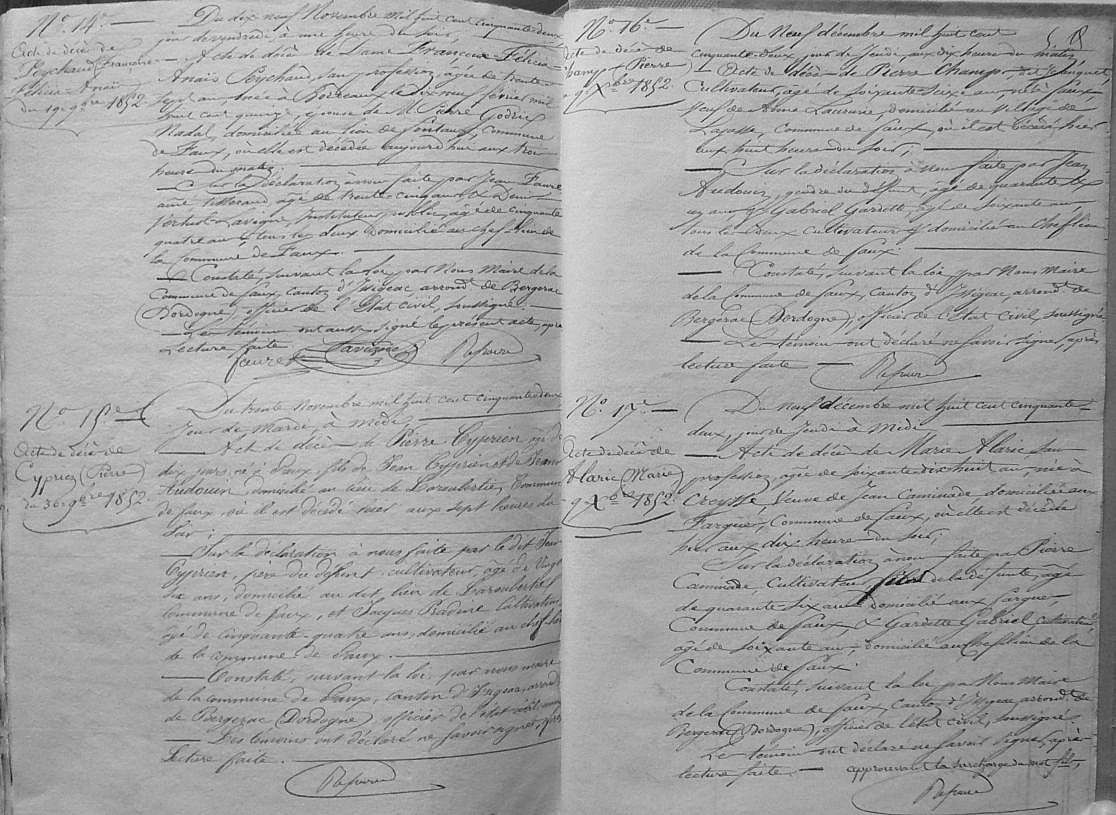 N.º 14.e
Acte de décès de
Peychaud (Françoise
Félicie Anaïs
du 19 9bre 1852
Du dix neuf Novembre mil huit cent cinquante deux
jour de vendredi à une heure du soir,
Acte de décès de Dame Françoise Félicie
Anaïs Peychaud, sans profession, agée de trente
sept ans, née à Bordeaux le dix neuf février mil
huit cent quinze, épouse de M. Pierre
Nadal, domiciliée au lieu de commune
de Faux, où elle est décédée aujourd'hui aux trois
heures du matin
Sur la déclaration à nous faite par Jean Faure
ainé agé de trente cinq ans, &
Lavigne, Instituteur agé de cinquante
quatre ans tous les deux domiciliés au chef lieu de
la Commune de Faux.
Constaté, suivant la loi, par Nous Maire de la
Commune de Faux, canton d'Issigeac arrondt de Bergerac
(Dordogne), officier de l'Etat civil, soussigné
Les témoins ont aussi signé le présent acte, après
Lecture faite
faure Lavigne
N.º 15.e
Acte de décès de
Cyprien (Pierre)
du 30 9bre 1852
Du trente Novembre mil huit cent cinquante deux
jour de Mardi, à midi,
Acte de décès de Pierre Cyprien agé de
dix jours, né à Faux, fils de Jean Cyprien et de Jeanne
Audouin domicilié au lieu de Laroubertie, Commune
de faux, où il est décédé hier aux sept heures du
Soir;
Sur la déclaration à nous faite par le dit Jean
Cyprien, père du défunt, cultivateur, agé de vingt
six ans, domicilié au dit lieu de Laroubertie
Commune de faux, et Jacques cultivateur
agé de cinquante quatre ans, domicilié au chef lieu
de la commune de Faux.
Constaté, suivant la loi, par nous maire
de la commune de Faux, canton d'Issigeac, arrondt
de Bergerac (Dordogne), officier de l'état civil
Les témoins ont déclaré ne savoir signer, après
Lecture faite.
N.º 16.e
Acte de décès de
Champ Pierre
9 Xbre 1852
8
Du Neuf décembre mil huit cent
cinquante deux, jour de Jeudi, aux dix heures du matin
Acte de décès de Pierre Champ dit
Cultivateur, agé de soixante seize ans, né à faux
veuf de Anne domicilié au village de
Commune de faux, où il est décédé hier
aux huit heures du soir;
Sur la déclaration à nous faite par Jean
Audouin, gendre du défunt, agé de quarante six
ans, & Gabriel Gardette, agé de soixante ans
tous les deux cultivateurs & domiciliés au Cheflieu
de la Commune de faux
Constaté, suivant la loi par Nous Maire
de la Commune de faux, canton d'Issigeac, arrondt de
Bergerac (Dordogne), officier de l'Etat civil, soussigné
Les témoins ont déclaré ne savoir signer, après
lecture faite
N.º 17.e
Acte de décès de
Alarie (Marie)
9 Xbre 1852
Du Neuf décembre mil huit cent cinquante-
deux, jour de Jeudi à Midi
Acte de décès de Marie Alarie sans
profession, agée de soixante dix huit ans, née à
Creysse, Veuve de Jean Caminade domiciliée aux
Farguer, Commune de faux, où elle est décédée
hier aux dix heures du soir;
Sur la déclaration à nous faite par Pierre
Caminade, Cultivateur, fils de la défunte, agé
de quarante six ans domicilié aux Fargues,
Commune de Faux, & Gardette Gabriel cultivateur
agé de soixante ans, domicilié au cheflieu de la
Commune de faux.
Constaté, suivant la loi par Nous Maire
de la Commune de faux Canton d'Issigeac arrondt de
Bergerac (Dordogne), officier de l'état civil, soussigné
Les témoins ont déclaré ne savoir signer, après
lecture faite. approuvant la surcharge du mot fils,